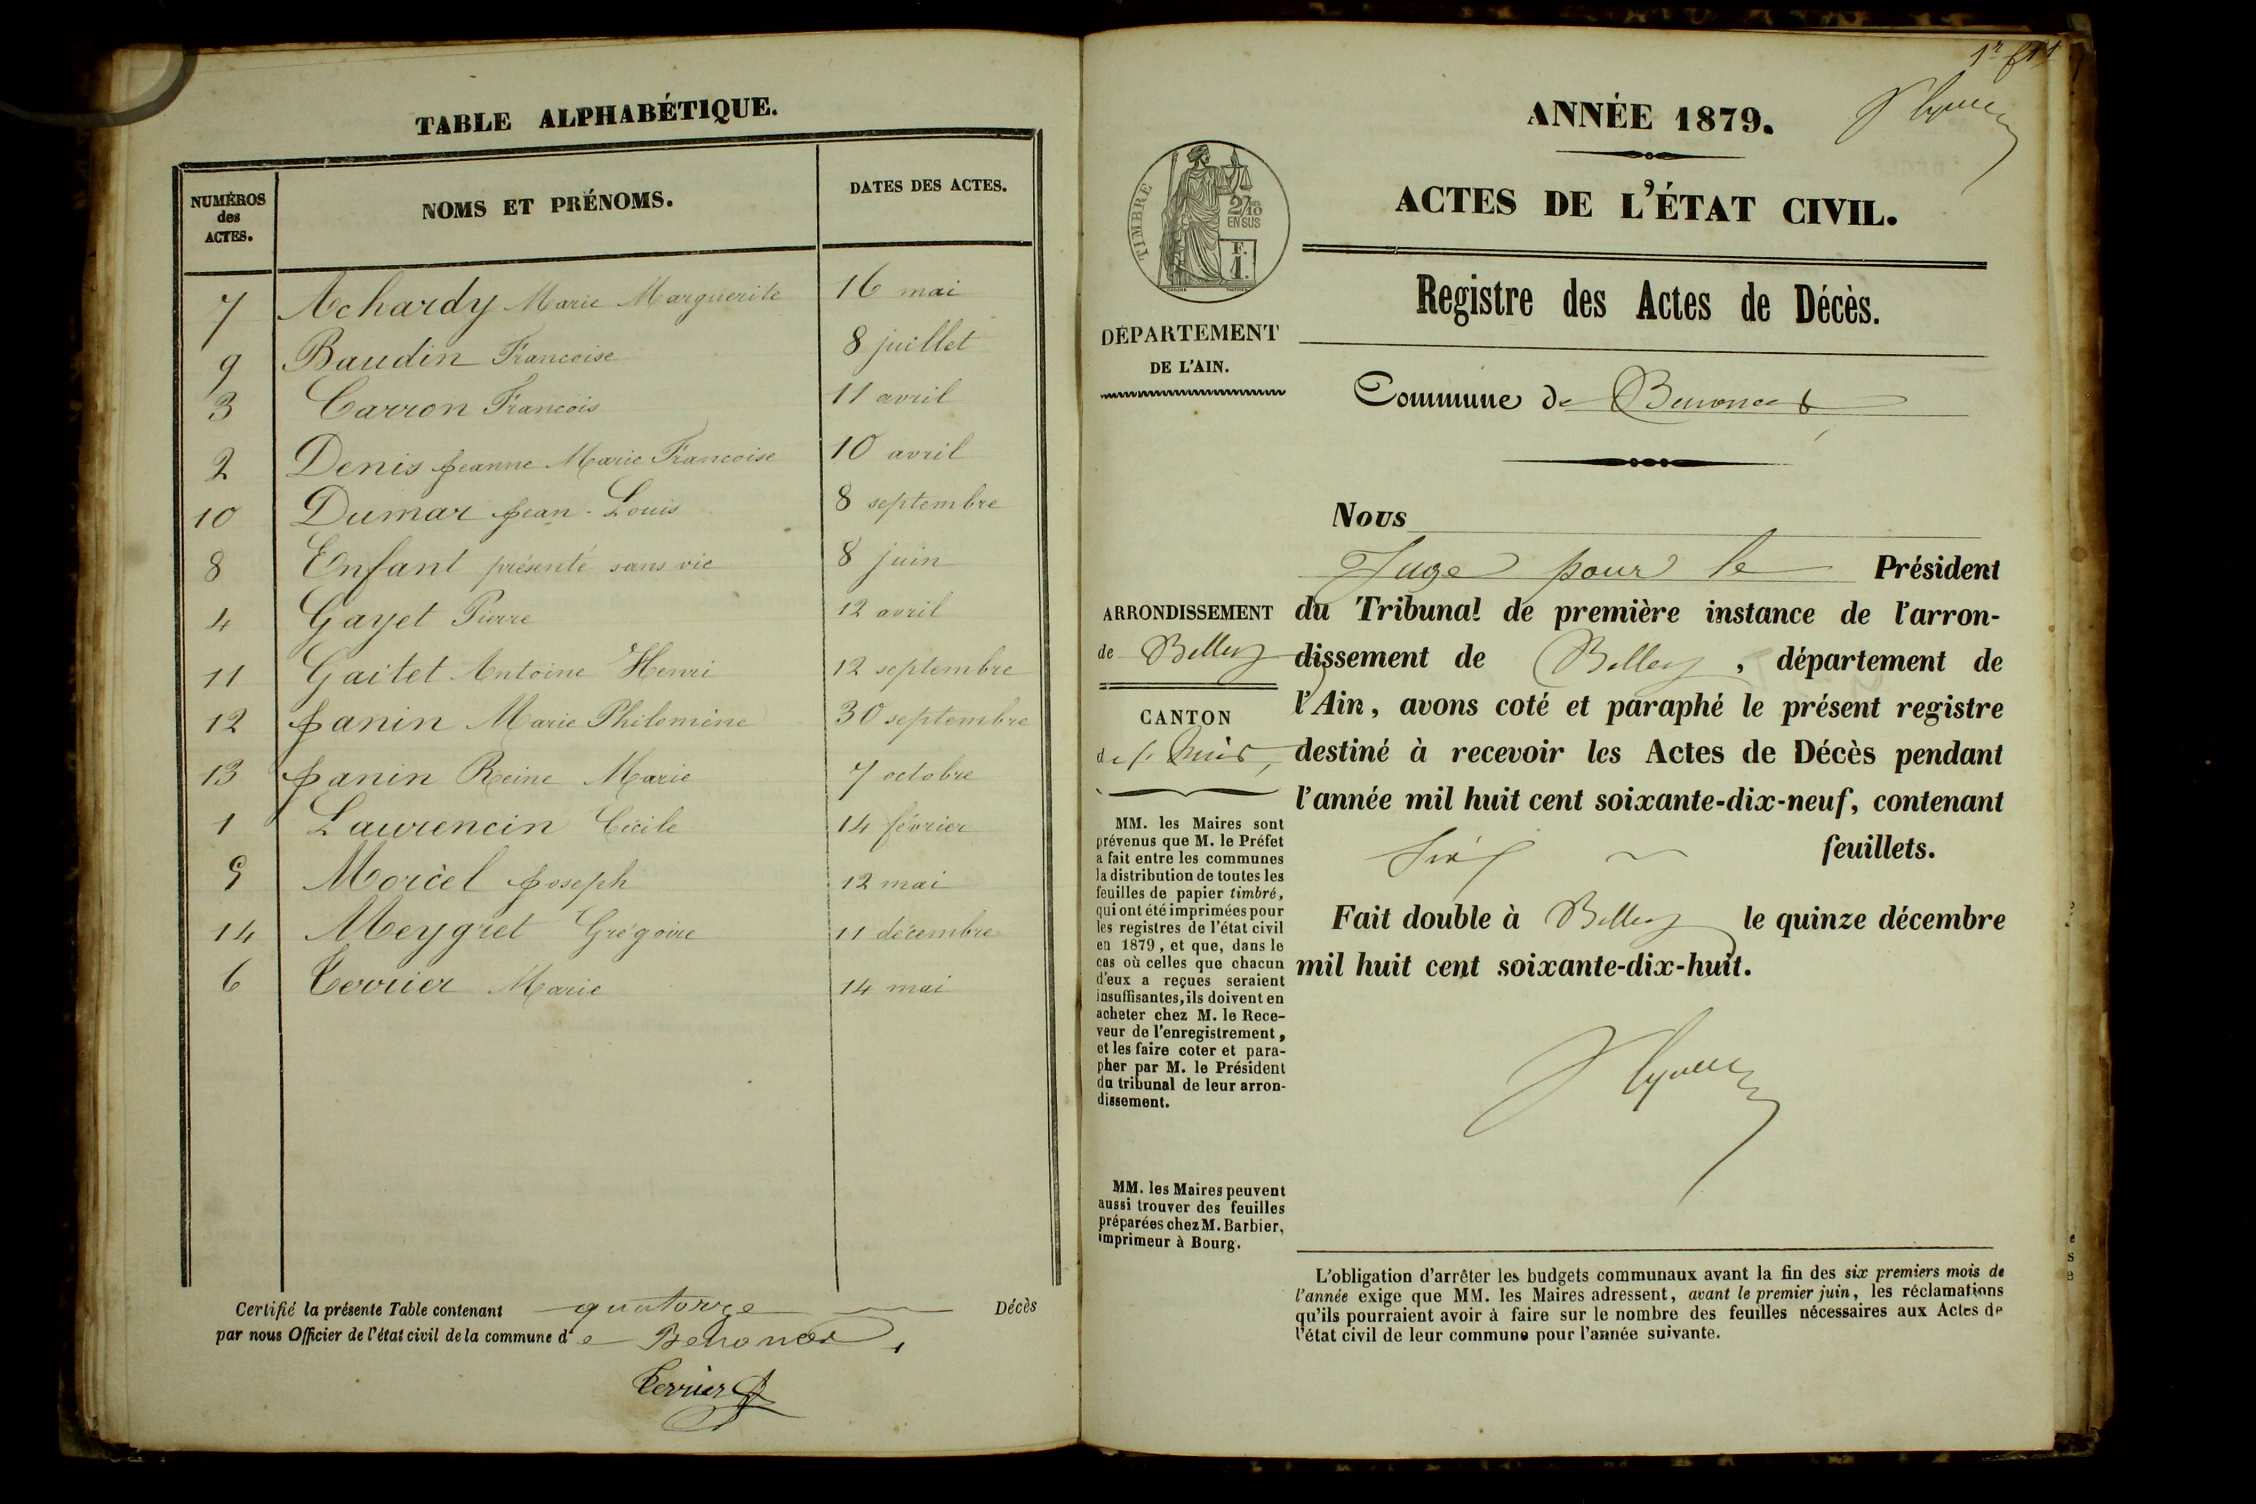 TABLE ALPHABÉTIQUE.
NUMÉROS des ACTES.
NOMS ET PRÉNOMS.
DATES DES ACTES.
7 Achardy Marie Marguerite 16 mai
9 Baudin Francoise 8 juillet
3 Carron Francois 11 avril
2 Denis Jeanne Marie Francoise 10 avril
10 Dumar Jean-Louis 8 septembre
8 Enfant présenté sans vie 8 juin
4 Gayet Pierre 12 avril
11 Gaitet Antoine Henri 12 septembre
12 Janin Marie Philomène 30 septembre
13 Janin Reine Marie 7 octobre
1 Laurencin Cécile 14 février
5 Morcel Joseph 12 mai
14 Meygret Grégoire 11 décembre
6 Terrier Marie 14 mai
Certifié la présente Table contenant quatorze Décès
par nous Officier de l'état civil de la commune de Benonces
Terrier
1r f
ANNÉE 1879.
ACTES DE L'ÉTAT CIVIL.
TIMBRE
2/10
EN SUS
F.
1.
Registre des Actes de Décès.
DÉPARTEMENT
DE L'AIN.
Commune de Benonces
Nous
Juge pour le Président
du Tribunal de première instance de l'arron-
dissement de Belley, département de
l'Ain, avons coté et paraphé le présent registre
destiné à recevoir les Actes de Décès pendant
l'année mil huit cent soixante-dix-neuf, contenant
feuillets.
Fait double à Belley le quinze décembre
mil huit cent soixante-dix-huit.
ARRONDISSEMENT
de Belley
CANTON
de
MM. les Maires sont
prévenus que M. le Préfet
a fait entre les communes
la distribution de toutes les
feuilles de papier timbré,
qui ont été imprimées pour
les registres de l'état civil
en 1879, et que, dans le
cas où celles que chacun
d'eux a reçues seraient
insuffisantes, ils doivent en
acheter chez M. le Rece-
veur de l'enregistrement,
et les faire coter et para-
pher par M. le Président
du tribunal de leur arron-
dissement.
MM. les Maires peuvent
aussi trouver des feuilles
préparées chez M. Barbier,
imprimeur à Bourg.
L'obligation d'arrêter les budgets communaux avant la fin des six premiers mois de
l'année exige que MM. les Maires adressent, avant le premier juin, les réclamations
qu'ils pourraient avoir à faire sur le nombre des feuilles nécessaires aux Actes de
l'état civil de leur commune pour l'année suivante.